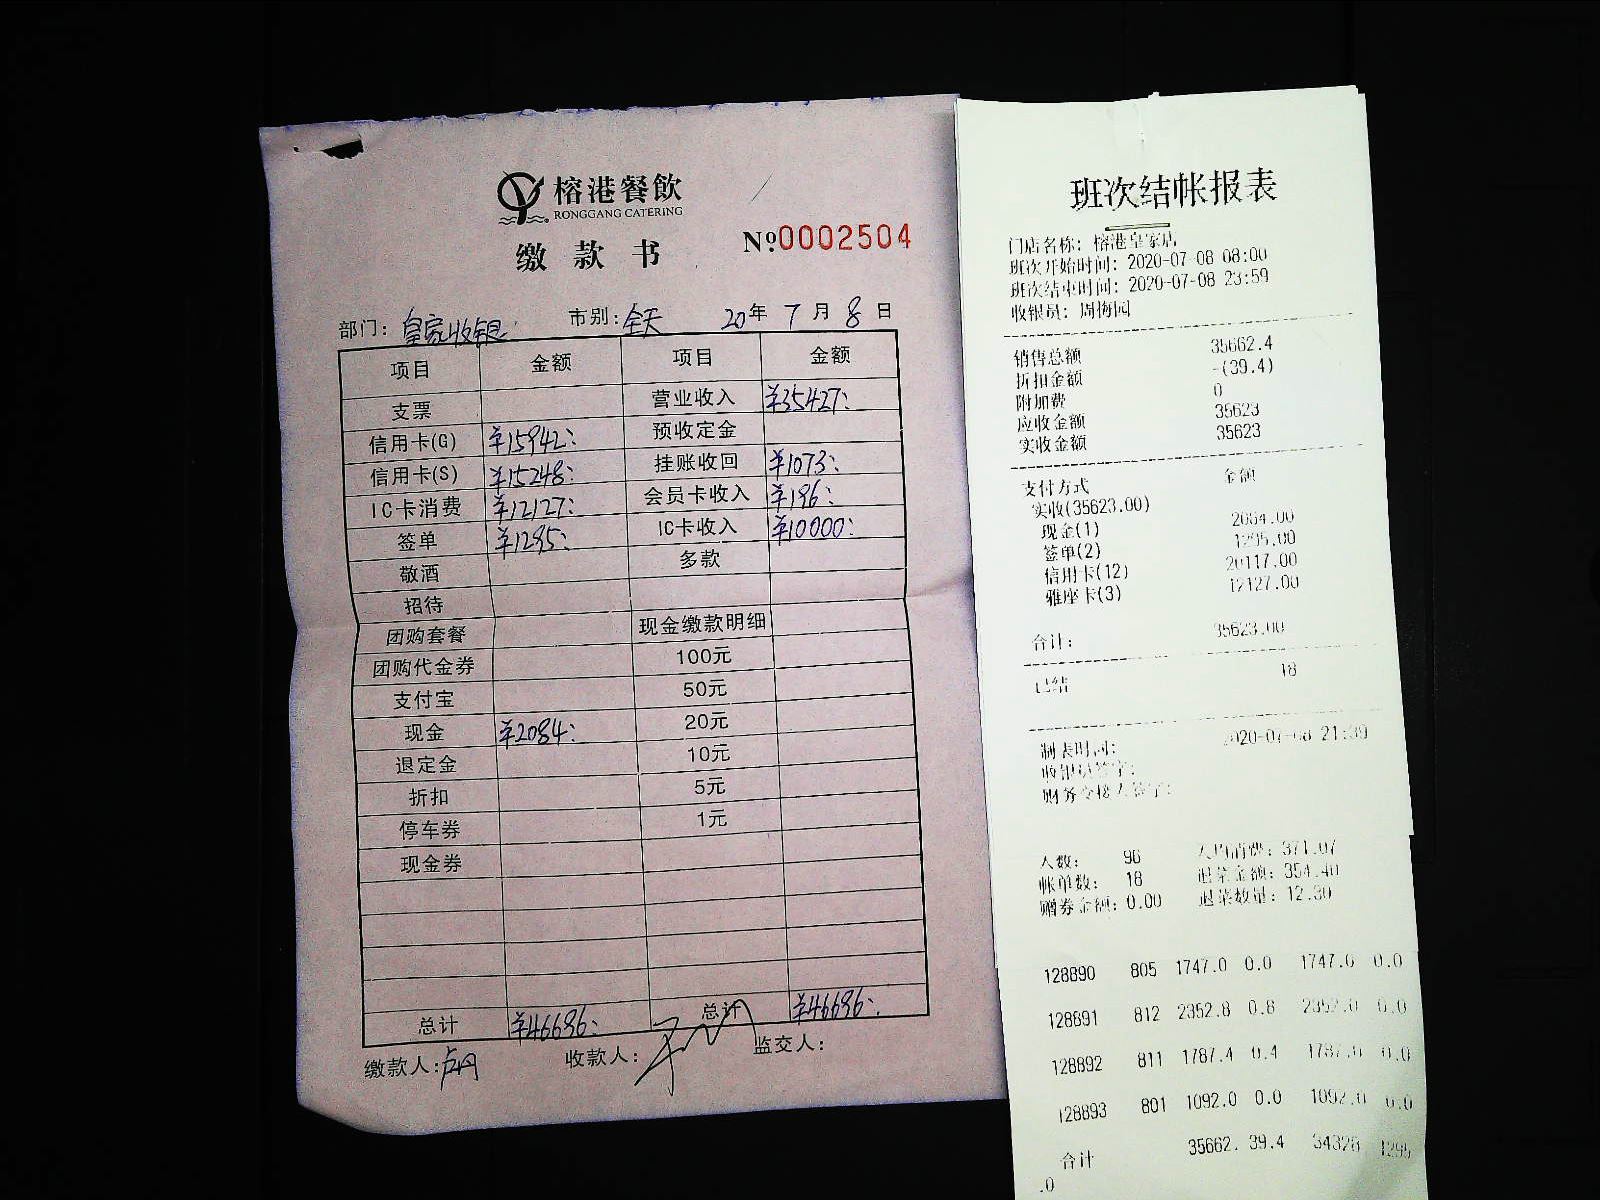 榕港餐飲
RONGGANG CATERING
缴款书
№0002504
部门: 皇家收银 市别: 全天 20年 7月 8日
项目 金额 项目 金额
支票 营业收入 ¥35427:
信用卡(G) ¥15942: 预收定金
信用卡(S) ¥15248: 挂账收回 ¥1073:
IC卡消费 ¥12127: 会员卡收入 ¥196:
签单 ¥1295: IC卡收入 ¥10000:
敬酒 多款
招待
团购套餐 现金缴款明细
团购代金券 100元
支付宝 50元
现金 ¥2084: 20元
退定金 10元
折扣 5元
停车券 1元
现金券
总计 ¥46696: 总计 ¥46696:
缴款人: 收款人: 监交人:
班次结帐报表
门店名称: 榕港皇家店
班次开始时间: 2020-07-08 08:00
班次结束时间: 2020-07-08 23:59
收银员: 周梅园
销售总额 35662.4
折扣金额 -(39.4)
附加费 0
应收金额 35623
实收金额 35623
支付方式 金额
实收(35623.00)
现金(1) 2084.00
签单(2) 1295.00
信用卡(12) 20117.00
雅座卡(3) 12127.00
合计: 35623.00
已结 18
制表时间: 2020-07-08 21:39
收银员签字:
财务交接人签字:
人数: 96 人均消费: 371.07
帐单数: 18 退菜金额: 354.40
赠券金额: 0.00 退菜数量: 12.30
128890 805 1747.0 0.0 1747.0 0.0
128891 812 2352.8 0.8 2352.0 0.0
128892 811 1787.4 0.4 1787.0 0.0
128893 801 1092.0 0.0 1092.0 0.0
合计 35662. 39.4 34328 1295
.0